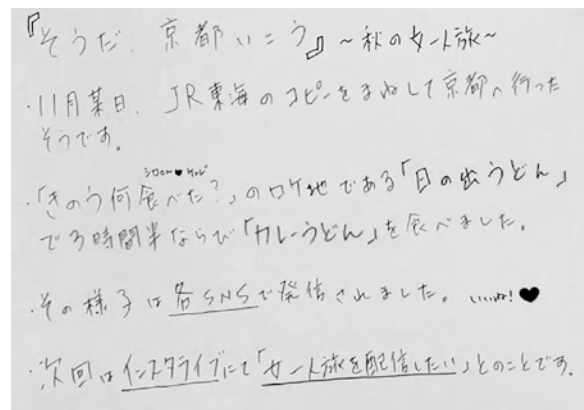 『そうだ、京都いこう』〜秋の女一人旅〜
・11月某日、JR東海のコピーをまねして京都へ行った
そうです。
シロさん♥ケンジ
・「きのう何食べた?」のロケ地である「日の出うどん」
で3時間半ならび「カレーうどん」を食べました。
・その様子は各SNSで発信されました。いいね!♥
・次回はインスタライブにて「女一人旅を配信したい」とのことです。